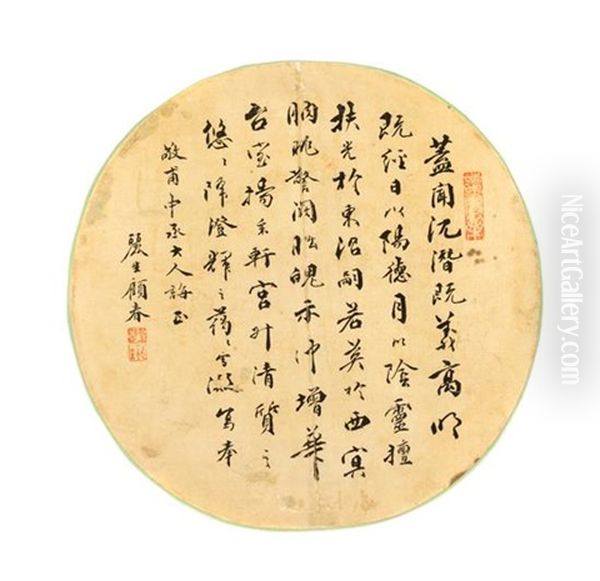 蓋聞沉潛既義高明
既經日以陽德月以陰靈擅
扶光於東沼嗣若英於西冥
朒脁警闕朏魄示冲增華
台室揚采軒宮升清質之
悠〻降澄輝之藹〻寫奉
敬甫中丞大人誨正
顧春
NiceArtGallery.com